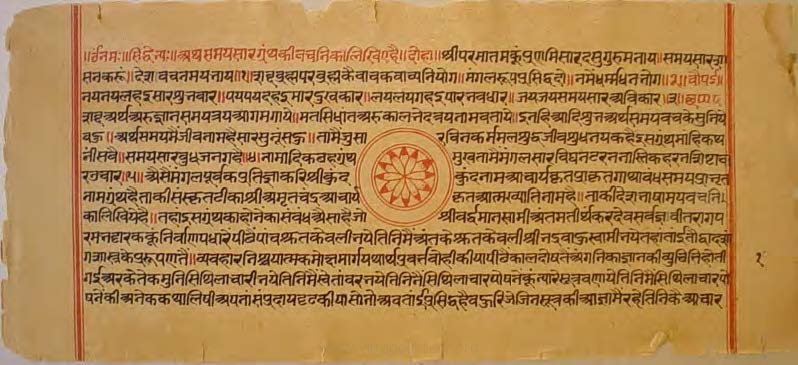 ॥सिद्धेभ्यः॥अथसमयसारग्रंथकीवचनिकालिखिएहै॥दोहा॥श्रीपरमातमकूंप्रणमिसारदसुगुरुमनाय॥समयसारशा
सनकरूं।देशवचनमयनाय॥१॥शब्दब्रह्मपरब्रह्मकेवाचकवाच्यनियोग॥मंगलरूपप्रसिद्धह्वै॥नमोंधर्मधनभोग॥२॥चौपई॥
नयनयलहइसारशुभवार॥पयपयदहइमारदुखकार॥लयलयगहइपारभवधार॥जयजयसमयसारअविकार॥३॥छप्पय॥
शब्दअर्थअरुज्ञानसमयत्रयआगमगाये॥मतसिधांतअरुकालभेदत्रयनामबताये॥इनहिआदिशुभअर्थसमयवचकेसुनिये
बहु॥अर्थसमयमैंजीवनामहैसारसुनूंसहु॥तामैंजुसा रविनकर्ममलशुद्धजीवशुधनयकहैइसग्रंथमाहिकथ
नीसवै॥समयसारबुधजनगहै॥४॥नामादिकछहग्रंथ मुखतामैंमंगलसारविघनटरननास्तिकहरनशिष्टाचा
रउचार॥५॥अैसैंमंगलपूर्वकप्रतिज्ञाकरिश्रीकुंद कुंदनामआचार्यकृतप्राकृतगाथाबंधसमयप्राभृत
नामग्रंथहैताकीसंस्कृतटीकाश्रीअमृतचंद्रआचार्य कृतआत्मख्यातिनामहै॥ताकीदेशभाषामयवचनि
कालिखियेहै॥तहांइसग्रंथकाहोनेकासंबंधअैसाहैजो श्रीवर्द्धमानस्वामीअंतमतीर्थकरदेवसर्वज्ञवीतरागप
रमभट्टारककूंनिर्वाणपधारेपीछैपांचश्रुतकेवलीभयेतिनिमैंअंतकेश्रुतकेवलीश्रीभद्रबाहुस्वामीभयेतहांताईतौद्वादशां
गशास्त्रकेप्ररूपणतैं॥व्यवहारनिश्चयात्मकमोक्षमार्गयथार्थप्रवर्त्तवोहीकीयापीछैकालदोषतैंअंगनिकाज्ञानकीव्युच्छित्तिहोती
गईअरकेतेकमुनिसिथिलाचारीभयेतिनिमैंस्वेतांबरभयेतिनिनैंसिथिलाचारपोषनेंकूंन्यारेसूत्रबणायेतिनिमैंसिथिलाचारपो
षनेंकीअनेककथालिषीअपनांसंप्रदायदृढकीयासोतोअबतांईप्रसिद्धहैबहुरिजेजिनसूत्रकीआज्ञामैंरहेतिनिकैआचार
१